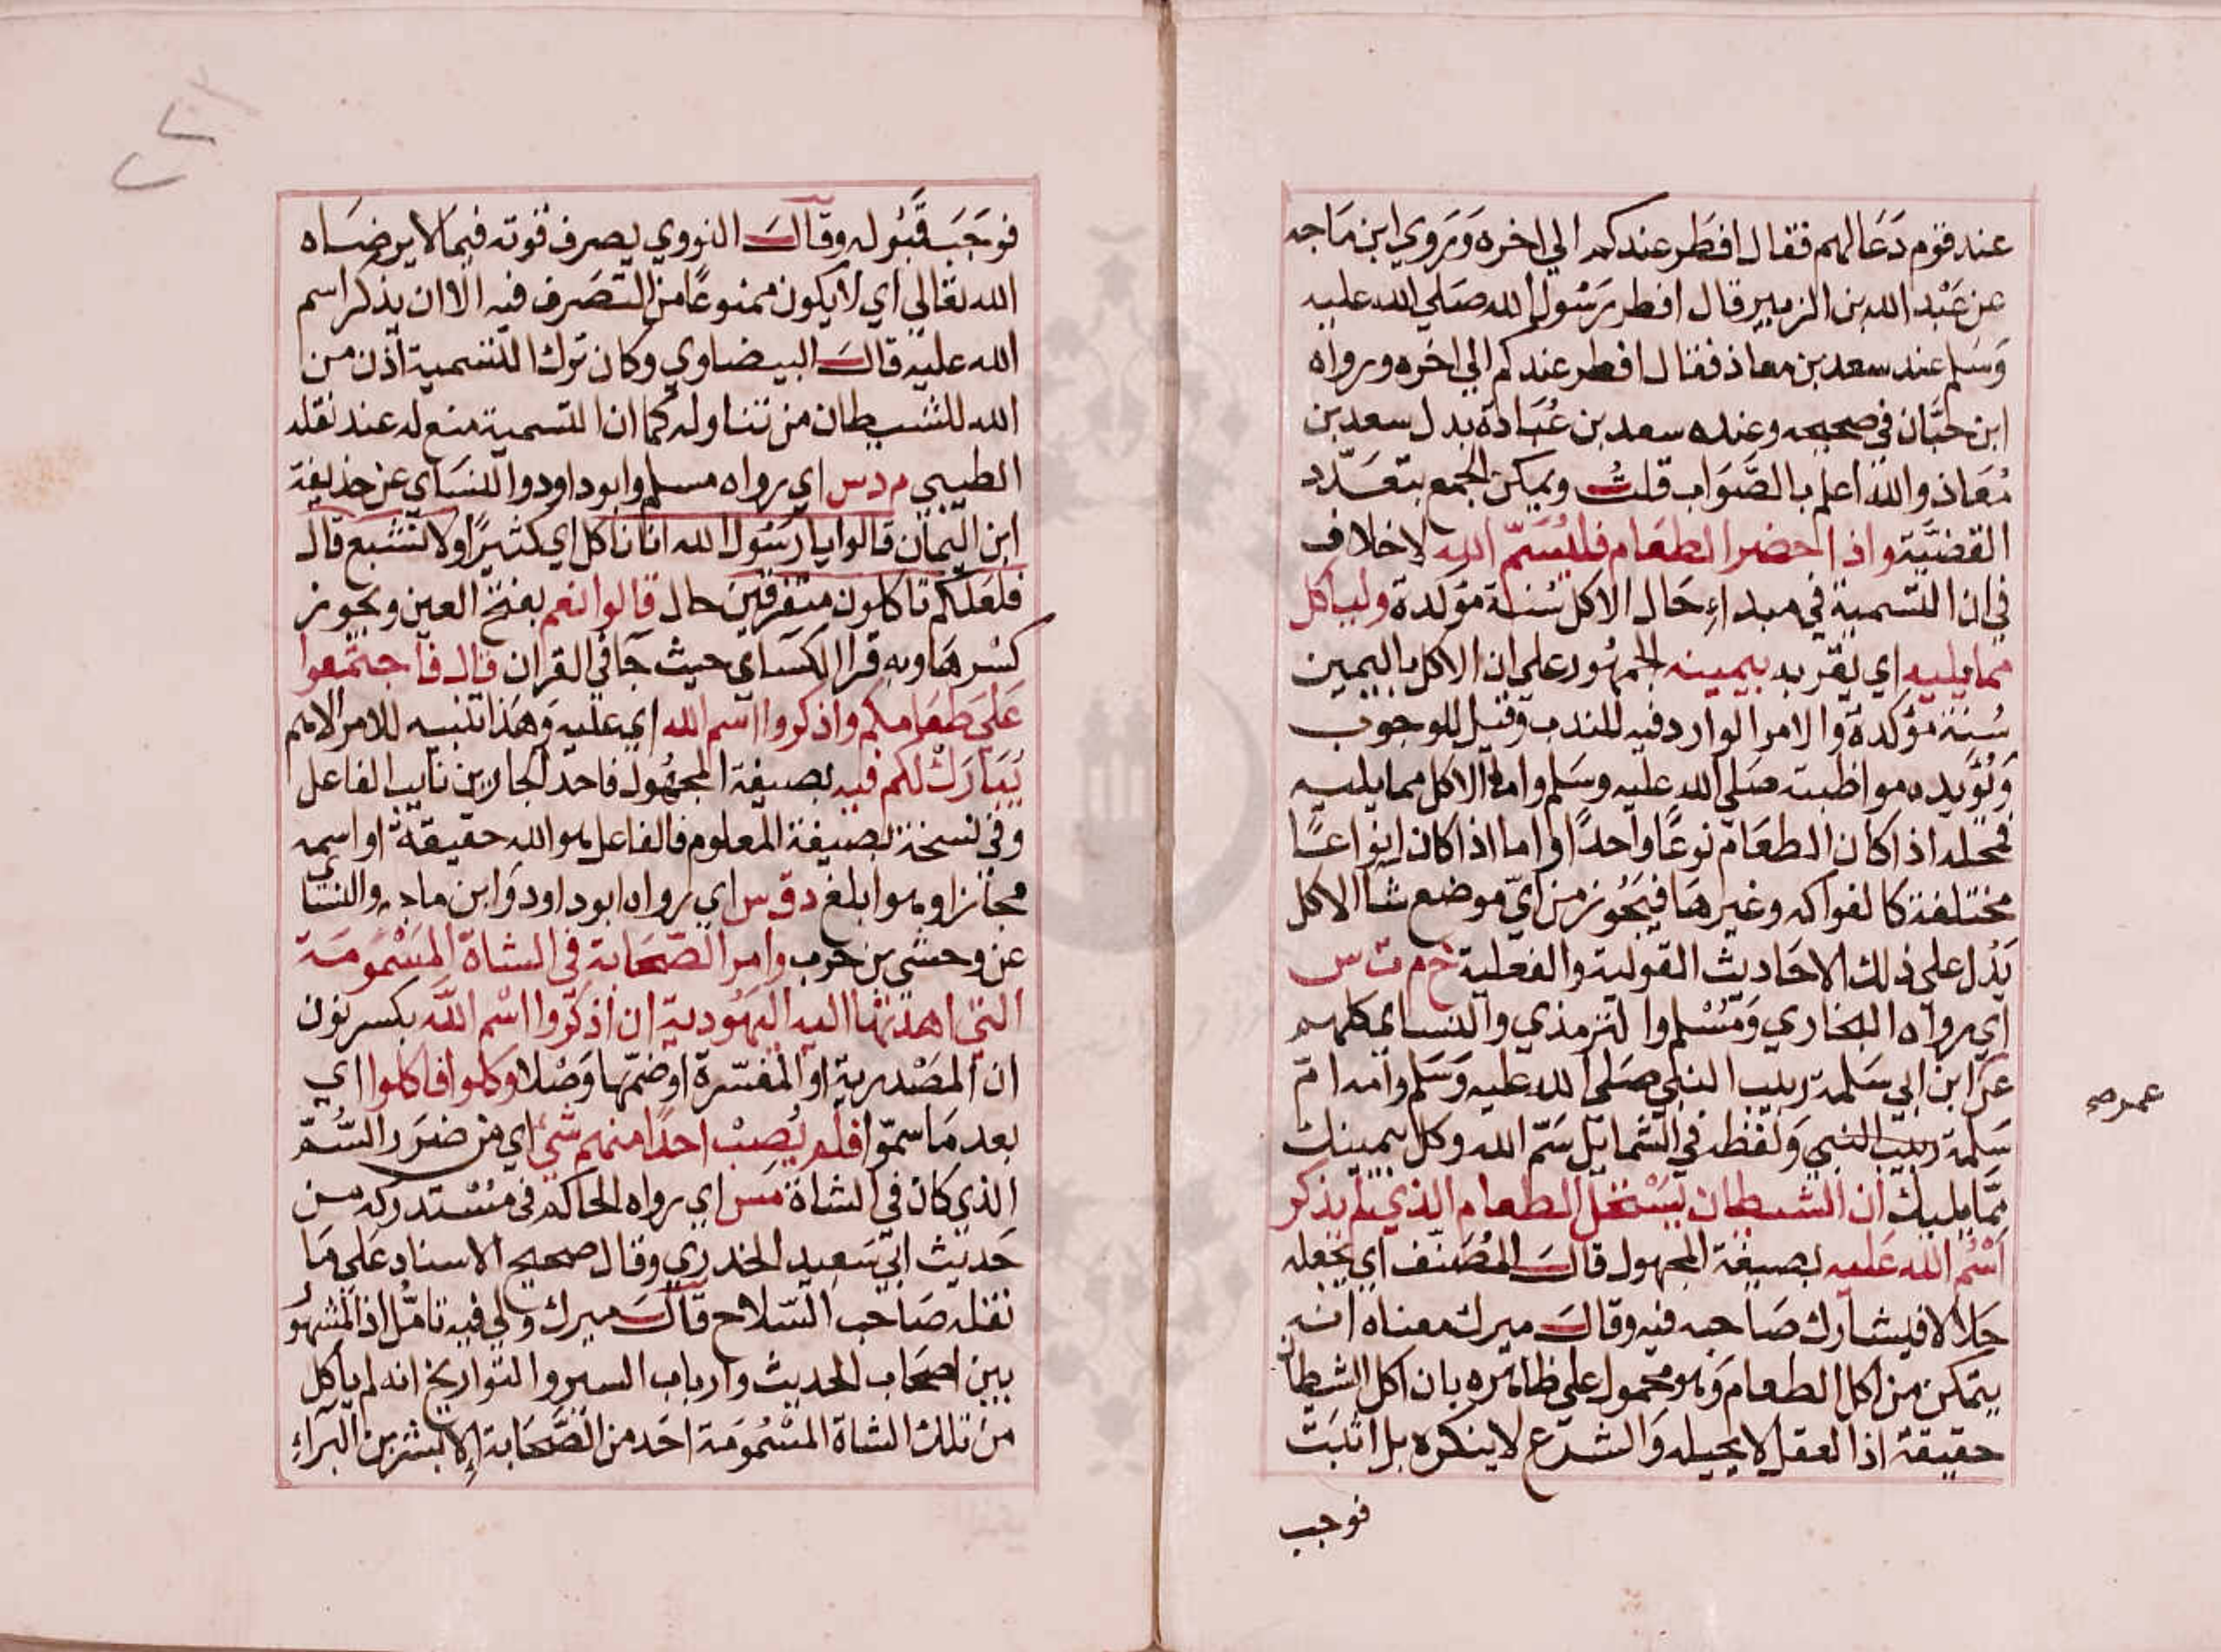 عند قوم دَعَا لهم فقال افطَر عندكم الي اخره وَيَروي ابن مَاجه
عن عَبْد الله بن الزبير قال افطر رَسُول الله صَلي الله عليه
وَسَلم عند سعد بن معاذ فقال افطر عندكم الي اخره ورواه
ابن حبَّان في صحيحه وعنده سعد بن عُبَادة بدل سعد بن
مُعَاذ والله اعلم بالصَّوَاب قلتُ ويمكن الجمع بتعَدّد
القضيَّة واذا حضر الطعَام فليُسَمّ الله لاخلاف
في ان التسمية في مبداءِ حَال الاكل سُنة مؤكدة ولياكل
مما يليه اي يقربه بيمينه الجمهُور علي ان الاكل باليمين
سُنة مؤكدة والامر الوارد فيه للندب وقيل للوجوب
وَيُؤَيده مواظبته صَلي الله عليه وسَلم واما الاكل مما يليه
فمحله اذا كان الطعَام نوعًا واحدًا واما اذا كان انواعًا
مختلفة كالفواكه وغيرهَا فيَجُوز من ايّ موضع شا الاكل
يَدُل علي ذلك الاحَاديث القولية والفعلية خ م ت س
اي رواه البخاري وَمُسْلم والترمذي والنساي كلهم
عن ابن ابي سَلمة ربيب النبي صَلي الله عليه وَسَلم وامه ام
عمر صح
سَلمة ربيب النبي وَلفظه في الشمايل سَمّ الله وكل بيمينك
ممَّا يليك ان الشيطان يَسْتحل الطعام الذي لم يذكر
اسْمُ الله عَليه بصيغة المجهول قالَ المُصَنّف اي يجعله
حَلالا فيشارك صَاحبه فيه وقالَ ميرك معناه انه
يتمكن من اكل الطعام وَهو محمول علي ظاهره بان اكل الشيطان
حقيقة اذ العقل لا يحيله وَالشرع لا ينكره بل اثبَتَ
فوجب
فوَجَبَ قَبُوله وقالَ النووي يصرف قُوته فيما لا يرضَاه
الله تعَالي اي لا يكون ممنوعًا من التصَرف فيه الا ان يذكر اسم
الله عليه قالَ البيضاوي وكان ترك التسمية اذن من
الله للشيطان من تناوله كما ان التسمية منع له عند نقله
الطيبي م د س اي رواه مسلم وابو داود والنسَاي عن حذيفة
ابن اليمَان قالوا يا رَسُول الله انا ناكل اي كثيرًا ولا نشبع قال
فلعَلكم تاكلون متفرقين حال قالوا نعم بفتح العين ويجوز
كسْرهَا وبه قرا الكسَاي حيث جَا في القران قال فاجتمعوا
عَلَى طعَامكم واذكروا اسم الله اي عليه وَهَذا تنبيه للامر الاهم
يُبَارَكْ لكم فيه بصيغة المجهُول فاحد الجارين نايب الفاعل
وفي نسخة بصيغة المعلوم فالفاعل هو الله حقيقةً او اسمه
مجازا وهو ابلغ د ق س اي رواه ابو داود وَابن ماجه والنساي
عن وحشي بن حرب وامر الصَّحَابة في الشاة المَسْمُومَة
التي اهدتها اليه اليَهُودية ان اذكروا اسْم الله بكسر نون
ان المَصْدرية او المفسّرة او ضمّها وَصْلا وكلوا فاكلوا اي
بعد مَا سموّا فلم يُصِبْ احدًا منهم شيٌ اي من ضرَر السُّمّ
الذي كان في الشاة مس اي رواه الحاكم في مُسْتدركه من
حَديث ابي سَعيد الخدري وقال صحيح الاسناد عَلي مَا
نقله صَاحب السّلاح قالَ ميرك ولي فيه تامُّل اذ المشهُور
بين اصحَاب الحديث وارباب السير والتواريخ انه لم ياكل
من تلك الشاة المسْمُومَة احَد من الصَّحَابة اِلا بشر بن البَراءِ